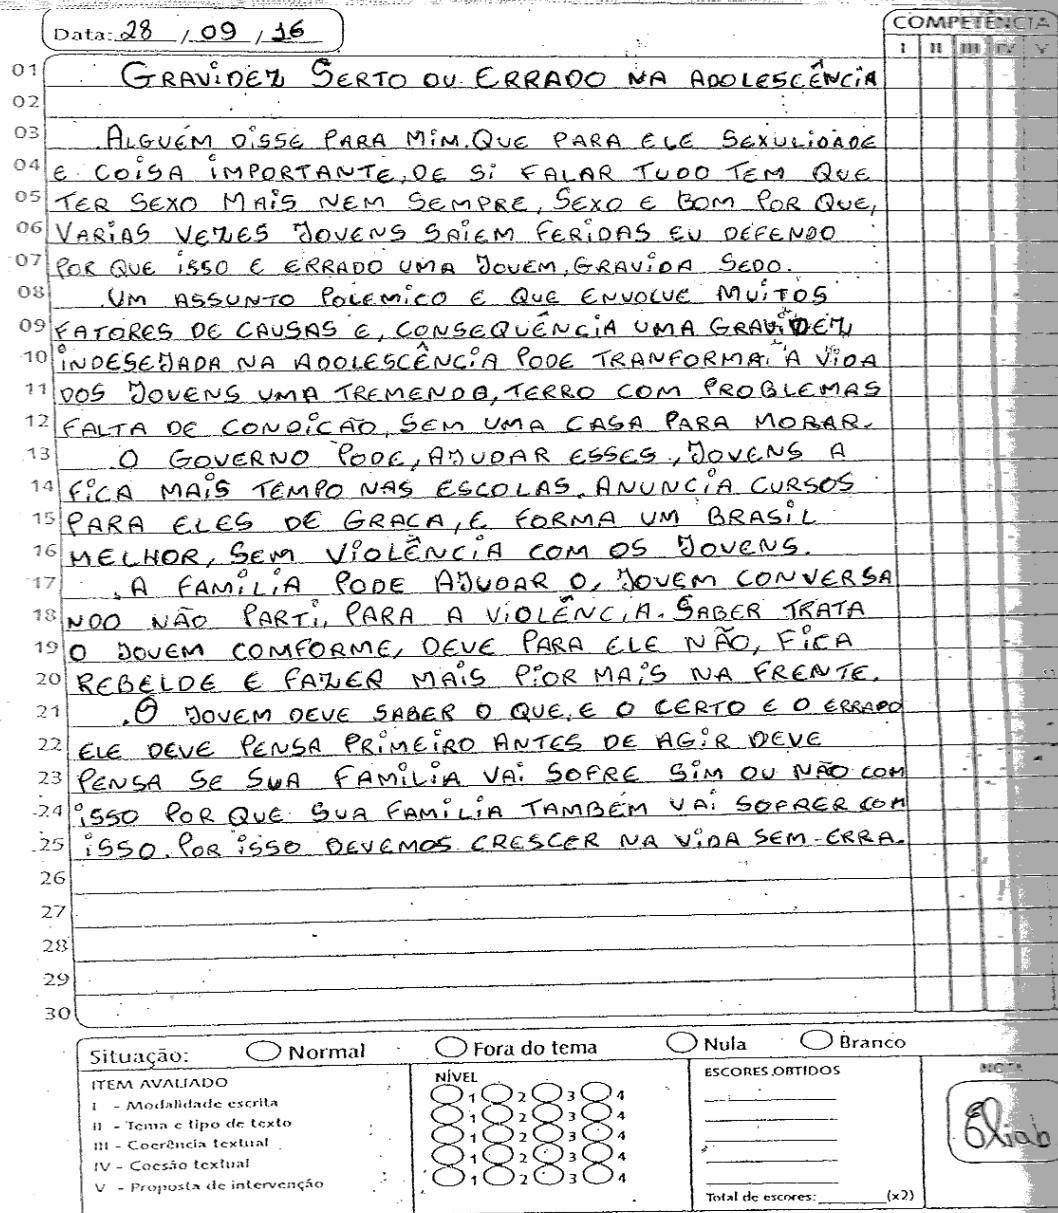 Data: 28 / 09 / 16
COMPETÊNCIA
I II III IV V
01 GRAVIDEZ SERTO OU ERRADO NA ADOLESCÊNCIA
02
03 ALGUÉM DISSE PARA MIM. QUE PARA ELE SEXULIDADE
04 E COISA IMPORTANTE, DE SI FALAR TUDO TEM QUE
05 TER SEXO MAIS NEM SEMPRE, SEXO E BOM POR QUE,
06 VARIAS VEZES JOVENS SAIEM FERIDAS EU DEFENDO
07 POR QUE ISSO E ERRADO UMA JOVEM, GRAVIDA SEDO.
08 UM ASSUNTO POLEMICO E QUE ENVOLVE MUITOS
09 FATORES DE CAUSAS E, CONSEQUÊNCIA UMA GRAVIDEZ,
10 INDESEJADA NA ADOLESCÊNCIA PODE TRANFORMA. A VIDA
11 DOS JOVENS UMA TREMENDA, TERRO COM PROBLEMAS
12 FALTA DE CONDICÃO, SEM UMA CASA PARA MORAR.
13 O GOVERNO PODE, AJUDAR ESSES, JOVENS A
14 FICA MAIS TEMPO NAS ESCOLAS. ANUNCIA CURSOS
15 PARA ELES DE GRACA, E FORMA UM BRASIL
16 MELHOR, SEM VIOLÊNCIA COM OS JOVENS.
17 . A FAMÍLIA PODE AJUDAR O, JOVEM CONVERSA
18 NDO NÃO PARTI, PARA A VIOLÊNCIA. SABER TRATA
19 O JOVEM COMFORME, DEVE PARA ELE NÃO, FICA
20 REBELDE E FAZER MAIS PIOR MAIS NA FRENTE.
21 . O JOVEM DEVE SABER O QUE, E O CERTO E O ERRADO
22 ELE DEVE PENSA PRIMEIRO ANTES DE AGIR DEVE
23 PENSA SE SUA FAMÍLIA VAI SOFRE SIM OU NÃO COM
24 ISSO POR QUE SUA FAMÍLIA TAMBÉM VAI SOFRER COM
25 ISSO. POR ISSO DEVEMOS CRESCER NA VIDA SEM ERRA.
26
27
28
29
30
Situação: Normal Fora do tema Nula Branco
ITEM AVALIADO
I - Modalidade escrita
II - Tema e tipo de texto
III - Coerência textual
IV - Coesão textual
V - Proposta de intervenção
NÍVEL
1 2 3 4
1 2 3 4
1 2 3 4
1 2 3 4
1 2 3 4
ESCORES OBTIDOS
Total de escores: ______ (x2)
NOTA
Eliab